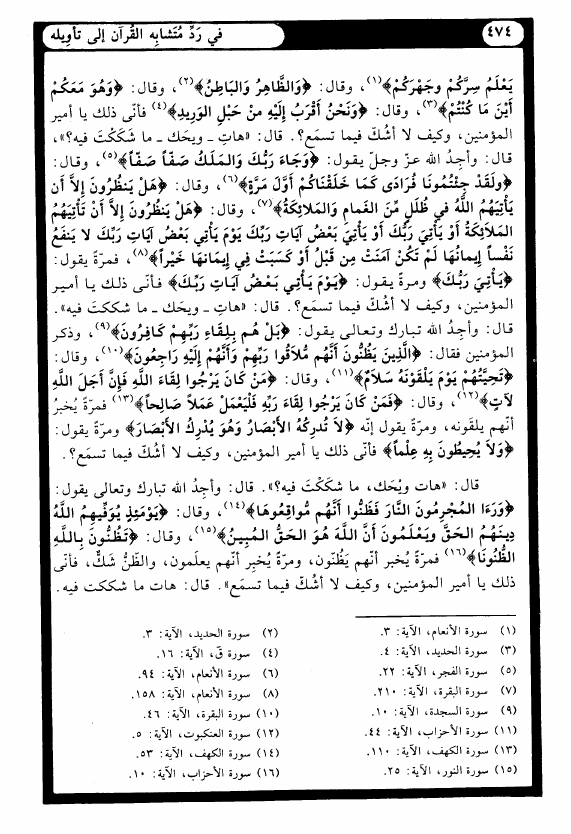 ٤٧٤
في رَدِّ مُتَشابِه القُرآن إلى تأوِيله
يَعْلَمُ سِرَّكُمْ وجَهْرَكُمْ﴾(١)، وقال: ﴿وَالظَّاهِرُ وَالبَاطِنُ﴾(٢)، وقال: ﴿وَهُوَ مَعَكُمْ
أَيْنَ مَا كُنْتُمْ﴾(٣)، وقال: ﴿وَنَحْنُ أَقْرَبُ إِلَيْهِ مِنْ حَبْلِ الوَرِيدِ﴾(٤) فأنّى ذلك يا أمير
المؤمنين، وكيف لا أشُكّ فيما تسمَع؟. قال: «هاتِ ـ ويحَك ـ ما شَكَكْتَ فيه؟»،
قال: وأجِدُ الله عزّ وجلّ يقول: ﴿وَجَاءَ رَبُّكَ وَالمَلَكُ صَفّاً صَفّاً﴾(٥)، وقال:
﴿ولَقَدْ جِئْتُمُونَا فُرَادَى كَمَا خَلَقْنَاكُمْ أَوَّلَ مَرَّةٍ﴾(٦)، وقال: ﴿هَلْ يَنظُرُونَ إلاَّ أَن
يَأْتِيَهُمُ اللَّهُ في ظُلَلٍ مِّنَ الغَمامِ وَالمَلائِكَةُ﴾(٧)، وقال: ﴿هَلْ يَنظُرُونَ إِلاَّ أَنْ تَأْتِيَهُمُ
المَلاَئِكَةُ أَوْ يَأْتِيَ رَبُّكَ أَوْ يَأْتِيَ بَعْضُ آيَاتِ رَبِّكَ يَوْمَ يَأْتِي بَعْضُ آيَاتِ رَبِّكَ لا يَنفَعُ
نَفْساً إِيمانُهَا لَمْ تَكُنْ آمَنَتْ مِن قَبْلُ أَوْ كَسَبَتْ فِي إِيمَانِهَا خَيْراً﴾(٨)، فمرّةً يقول:
﴿يَأْتِيَ رَبُّكَ﴾ ومرةً يقول: ﴿يَوْمَ يَأْتِي بَعْضُ آيَاتِ رَبِّكَ﴾ فأنّى ذلك يا أمير
المؤمنين، وكيف لا أشُكّ فيما تسمَع؟. قال: «هاتِ ـ ويحَك ـ ما شككتَ فيه».
قال: وأجدُ الله تبارك وتعالى يقول: ﴿بَلْ هُم بِلِقَاءِ رَبِّهِمْ كَافِرُونَ﴾(٩)، وذكر
المؤمنين فقال: ﴿الَّذِينَ يَظُنُّونَ أَنَّهُم مُلاَقُوا رَبِّهِمْ وَأَنَّهُمْ إِلَيْهِ رَاجِعُونَ﴾(١٠)، وقال:
﴿تَحِيَّتُهُمْ يَوْمَ يَلْقَوْنَهُ سَلاَمٌ﴾(١١)، وقال: ﴿مَنْ كَانَ يَرْجُوا لِقَاءَ اللَّهِ فَإِنَّ أَجَلَ اللَّهِ
لآتٍ﴾(١٢)، وقال: ﴿فَمَنْ كَانَ يَرْجُوا لِقَاءَ رَبِّهِ فَلْيَعْمَلْ عَمَلاً صَالِحاً﴾(١٣) فمرّةً يُخبرُ
أنّهم يلقَونه، ومرّة يقول إنّه ﴿لاَ تُدرِكُهُ الأَبْصَارُ وَهُوَ يُدْرِكُ الأَبْصَارَ﴾ ومرّةً يقول:
﴿وَلاَ يُحِيطُونَ بِهِ عِلْماً﴾ فأنّى ذلك يا أمير المؤمنين، وكيف لا أشُكّ فيما تسمَع؟.
قال: «هات ويْحَك، ما شكَكْتَ فيه؟». قال: وأجِدُ الله تبارك وتعالى يقول:
﴿وَرَءَا المُجْرِمُونَ النَّارَ فَظَنُّوا أَنَّهُم مُّواقِعُوهَا﴾(١٤)، وقال: ﴿يَوْمَئِذٍ يُوَفِّيهِمُ اللَّهُ
دِينَهُمُ الحَقَّ ويَعْلَمُونَ أَنَّ اللَّهَ هُوَ الحَقُّ المُبِينُ﴾(١٥)، وقال: ﴿تَظُنُّونَ بِاللَّهِ
الظُّنُونَا﴾(١٦) فمرّةً يُخبر أنّهم يظُنّون، ومرّةً يُخبِر أنّهم يعلَمون، والظّنُ شَكّ، فأنّى
ذلك يا أمير المؤمنين، وكيف لا أشُكّ فيما تسمَع». قال: هات ما شككت فيه.
(١) سورة الأنعام، الآية: ٣.
(٢) سورة الحديد، الآية: ٣.
(٣) سورة الحديد، الآية: ٤.
(٤) سورة قَ، الآية: ١٦.
(٥) سورة الفجر، الآية: ٢٢.
(٦) سورة الأنعام، الآية: ٩٤.
(٧) سورة البقرة، الآية: ٢١٠.
(٨) سورة الأنعام، الآية: ١٥٨.
(٩) سورة السجدة، الآية: ١٠.
(١٠) سورة البقرة، الآية: ٤٦.
(١١) سورة الأحزاب، الآية: ٤٤.
(١٢) سورة العنكبوت، الآية: ٥.
(١٣) سورة الكهف، الآية: ١١٠.
(١٤) سورة الكهف، الآية: ٥٣.
(١٥) سورة النور، الآية: ٢٥.
(١٦) سورة الأحزاب، الآية: ١٠.